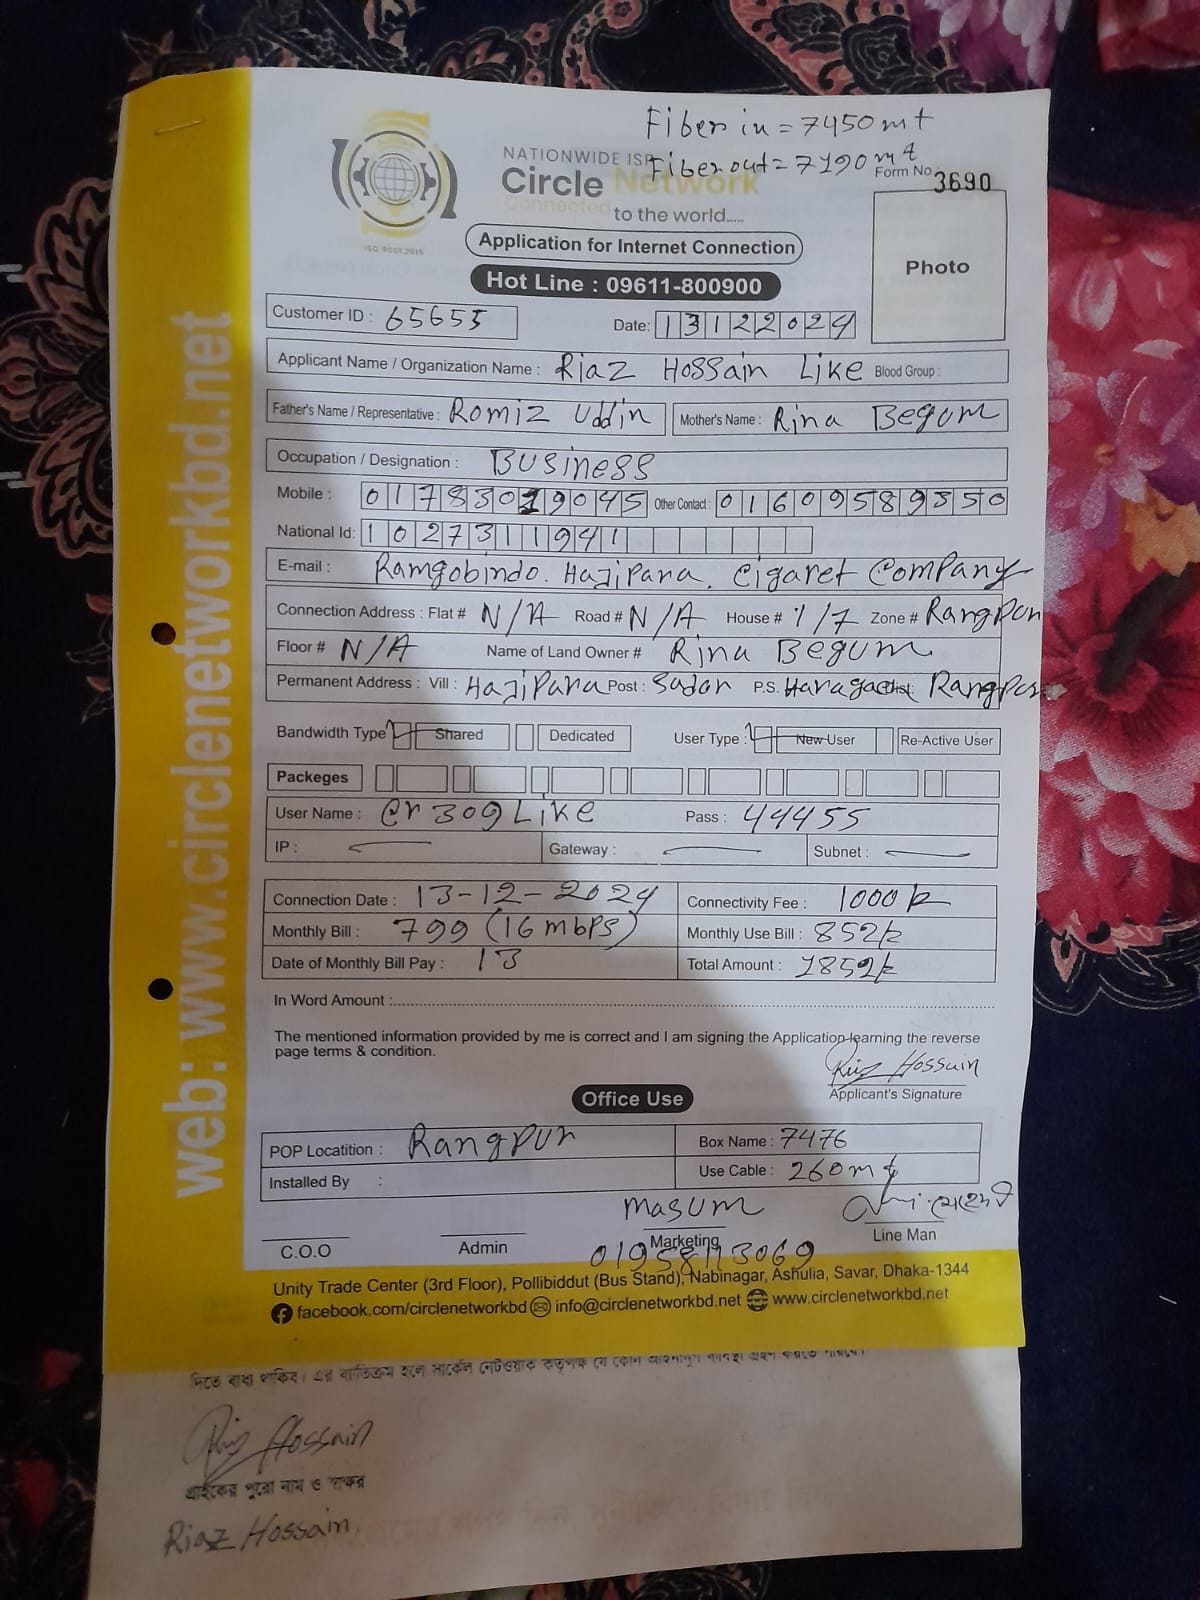 Fiber in = 7450 mt
NATIONWIDE ISP Fiber out = 7190 mt
Circle Network Form No 3690
Connected to the world.....
ISO 9001:2015
Application for Internet Connection
Photo
Hot Line : 09611-800900
Customer ID : 65655 Date: 13122024
Applicant Name / Organization Name : Riaz Hossain Like Blood Group :
Father's Name / Representative : Romiz Uddin Mother's Name : Rina Begum
Occupation / Designation : Business
Mobile : 01783019045 Other Contact : 01609589350
National Id: 1027311941
E-mail : Ramgobindo. Hajipara. Cigaret Company
Connection Address : Flat # N/A Road # N/A House # 1/7 Zone # Rangpur
Floor # N/A Name of Land Owner # Rina Begum
Permanent Address : Vill : Hajipara Post : Sadar P.S. Haragach Dist: Rangpur
Bandwidth Type Shared Dedicated User Type : New User Re-Active User
Packeges
User Name : Cr309Like Pass : 44455
IP : Gateway : Subnet :
Connection Date : 13-12-2024 Connectivity Fee : 1000/-
Monthly Bill : 799 (16 mbps) Monthly Use Bill : 852/-
Date of Monthly Bill Pay : 13 Total Amount : 1852/-
In Word Amount :
The mentioned information provided by me is correct and I am signing the Application learning the reverse
page terms & condition.
Riaz Hossain
Applicant's Signature
Office Use
POP Locatition : Rangpur Box Name : 7476
Installed By : Use Cable : 260 mt
Masum
C.O.O Admin Marketing Line Man
01958113069
Unity Trade Center (3rd Floor), Pollibiddut (Bus Stand), Nabinagar, Ashulia, Savar, Dhaka-1344
facebook.com/circlenetworkbd info@circlenetworkbd.net www.circlenetworkbd.net
web: www.circlenetworkbd.net
দিতে বাধ্য থাকিব। এর ব্যতিক্রম হলে সার্কেল নেটওয়ার্ক কতৃপক্ষ যে কোন
Riaz Hossain
গ্রাহকের পুরো নাম ও স্বাক্ষর
Riaz Hossain.